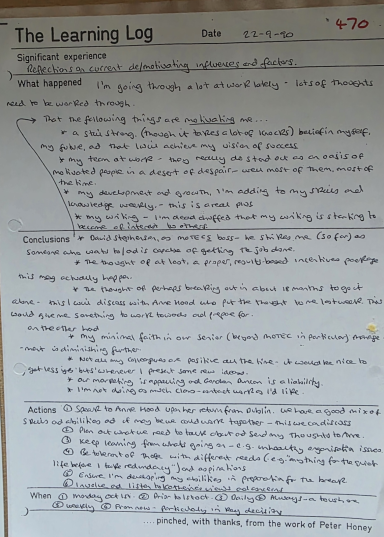 The Learning Log Date 22-9-90 470
Significant experience
Reflections on current de/motivating influences and factors.
What happened I'm going through a lot at work lately - lots of thoughts
need to be worked through.
That the following things are motivating me...
* a still strong (though it takes a lot of knocks) belief in myself,
my future, and that I will achieve my vision of success
* my team at work - they really do stand out as an oasis of
motivated people in a desert of despair - well most of them, most of
the time.
* my development and growth, I'm adding to my skills and
knowledge weekly - this is a real plus
* my writing - I'm dead chuffed that my writing is starting to
become of interest to others
Conclusions * David Stephenson, as boss - he strikes me (so far) as
someone who wants to/and is capable of getting the job done.
* The thought of at last, a proper, results-based incentives package
this may actually happen.
* The thought of perhaps breaking out in about 18 months to go it
alone - this I will discuss with Anne Hood who put the thought to me last week. This
would give me something to work towards and prepare for.
on the other hand
* My minimal faith in our senior (beyond in particular) manage
-ment is diminishing further.
* Not all my colleagues are positive all the time - it would be nice to
get less 'yes buts' whenever I present some new ideas.
* our marketing is appalling and is a liability.
* I'm not doing as much close-contact work as I'd like.
Actions ① Speak to Anne Hood upon her return from Dublin. We have a good mix of
skills and abilities and it may be we could work together - this we can discuss
② Plan out what we need to talk about and send my thoughts to Anne.
③ Keep learning from what's going on - e.g. unhealthy organisation issues
④ Be tolerant of those with different needs (e.g. 'anything for the quiet
life before I take redundancy') and aspirations
⑤ Ensure I'm developing my abilities in preparation for the break
⑥ Involve and listen to others' views and concerns
When ① Monday Oct 1st ② Prior to 1st Oct ③ Daily ④ Always - a tough one
⑤ Weekly ⑥ From now - particularly in key decisions
.... pinched, with thanks, from the work of Peter Honey